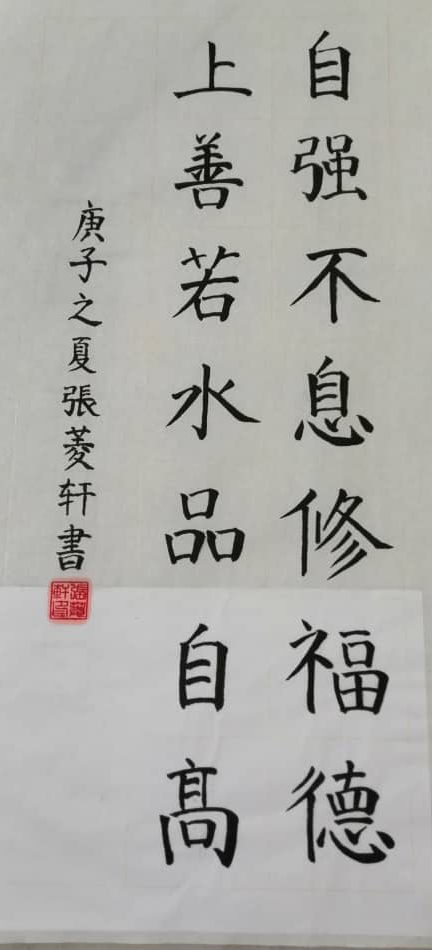 自强不息修福德
上善若水品自髙
庚子之夏張菱轩書